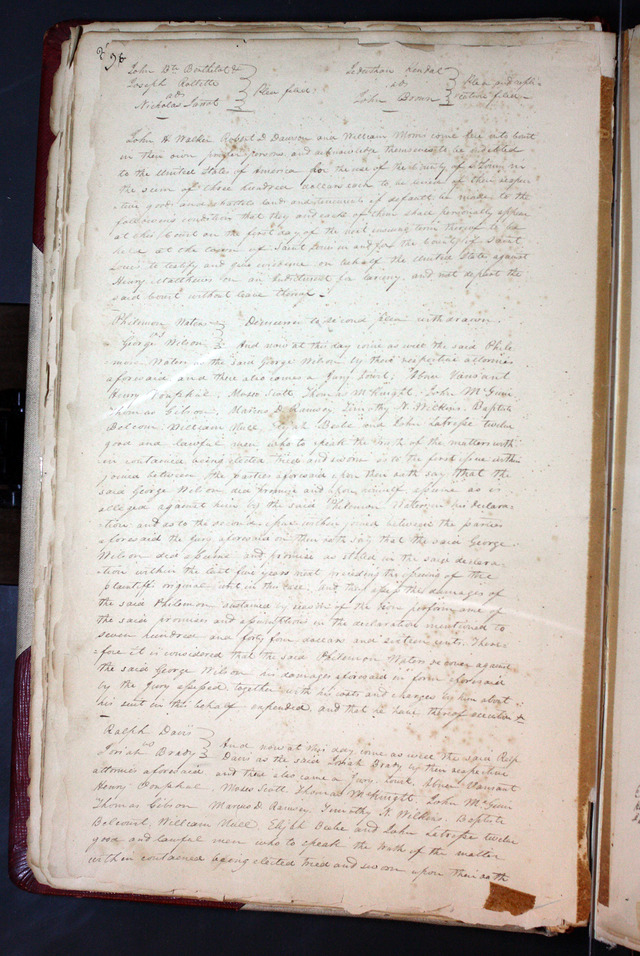 296
John Bte Berthelot &
Joseph Rolette
ads
Nicholas Jarrot
Plea filed
Jedethan Kendal
ads
John Brown
Plea and repli-
cation filed
John H Walker Robert D Dawson and William Morris come here into court
in their own proper persons and acknowledge themselves to be indebted
to the United States of America for the use of the County of St Louis in
the sum of three hundred dollars each to be levied of their respec-
tive goods and chattels lands and tenements if default be made, to the
following conditions that they and each of them shall personally appear
at this Court on the first day of the next term thereof to be
held at the town of Saint Louis in and for the County of Saint
Louis to testify and give evidence on behalf the United States against
Henry Matthews on an Indictment for larceny, and not depart the
said Court without leave thereof
Philemon Waters
vs
George Wilson
Demurrer to second plea withdrawn
And now at this day come as well the said Phile-
mon Waters as the said George Wilson by their respective attornies
aforesaid and there also comes a Jury, towit; Abner Vansant
Henry Pomphal, Moses Scott Thomas McKnight, John McGuin
Thomas Gibson, Marcus D Ramsey, Timothy N. Wilkins, Baptiste
Belcour, William Null, Elijah Beebe and John Latresse twelve
good and lawful men who to speak the truth of the matters with-
in contained being elected tried and sworn as to the first issue within
joined between the parties aforesaid upon their oath say that the
said George Wilson did promise and upon himself assume as is
alleged against him by the said Philemon Waters in his declara-
tion, and as to the second issue within joined between the parties
aforesaid the Jury aforesaid on their oath say that the said George
Wilson did assume and promise as stated in the said declara-
tion within the last five years next preceding the issuing of the
plaintiff original writ in this case. and they assess the damages of
the said Philemon sustained by reason of the non performance of
the said promises and assumptions in the declaration mentioned to
seven hundred and forty four dollars and sixteen cents. There-
fore it is considered that the said Philemon Waters recover against
the said George Wilson his damages aforesaid in form aforesaid
by the Jury assessed together with his costs and charges by him about
his suit in this behalf expended. and that he have thereof execution &
Ralph Davis
vs
Josiah Brady
And now at this day come as well the said Ralph
Davis as the said Josiah Brady by their respective
attornies aforesaid and there also came a Jury, towit, Abner Vansant
Henry Pomphal Moses Scott, Thomas McKnight, John McGuin
Thomas Gibson Marcus D. Ramsey, Timothy N. Wilkins, Baptiste
Belcourt, William Null, Elijah Beebe and John Latresse twelve
good and lawful men who to speak the truth of the matter
within contained being elected tried and sworn upon their oath